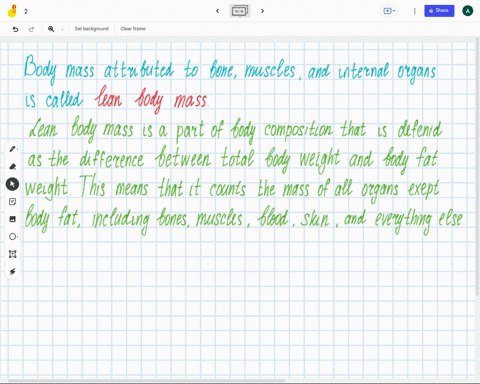 2
Set background
Clear frame
Share
A
Body mass attributed to bone, muscles, and internal organs
is called lean body mass.
Lean body mass is a part of body composition that is defenid
as the difference between total body weight and body fat
weight. This means that it counts the mass of all organs exept
body fat, including bones, muscles, blood, skin, and everything else